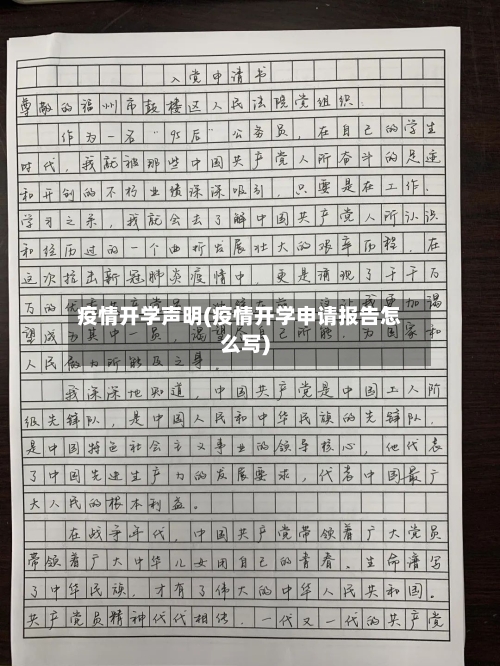 入党申请书
尊敬的福州市鼓楼区人民法院党组织：
作为一名“95后”公务员，在自己的学生
时代，我就被那些中国共产党人所奋斗的足迹
和开创的不朽业绩深深吸引，只要是在工作、
学习之余，我就会去了解中国共产党人所认识
和经历过的一个曲折发展壮大的艰辛历程，在
这次抗击新冠肺炎疫情中，更是涌现了千千万
万的优秀共产党员
疫情开学声明(疫情开学申请报告怎
么写)
望成为其中一员，己所能，为国家和
人民做力所能及之事。
我深深地知道，中国共产党是中国工人阶
级先锋队，是中国人民和中华民族的先锋队，
是中国特色社会主义事业的领导核心，他代表
了中国先进生产力的发展要求，代者中国最广
大人民的根本利益。
在战争年代，中国共产党带领着广大党员
带领着广大中华儿女用自己的青春、生命谱写
了中华民族，才有了伟大的中华人民共和国。
共产党员精神代代相传，一代又一代的共产党